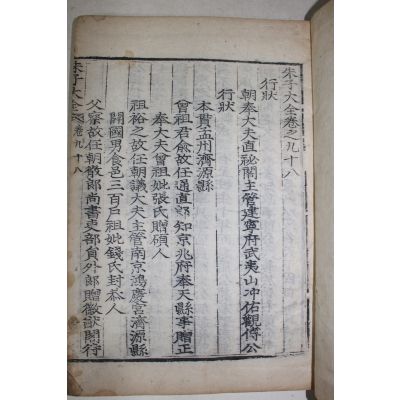 朱子大全卷之九十八
行狀
朝奉大夫直祕閣主管建寧府武夷山冲佑觀傅公
行狀
本貫孟州濟源縣
曾祖君俞故任通直郎知京兆府奉天縣事贈正
奉大夫曾祖妣張氏贈碩人
祖裕之故任朝議大夫主管南京鴻慶宮濟源縣
開國男食邑三百戶祖妣錢氏封恭人
父察故任朝散郎尚書吏部員外郎贈徽猷閣待
朱子大全 卷九十八